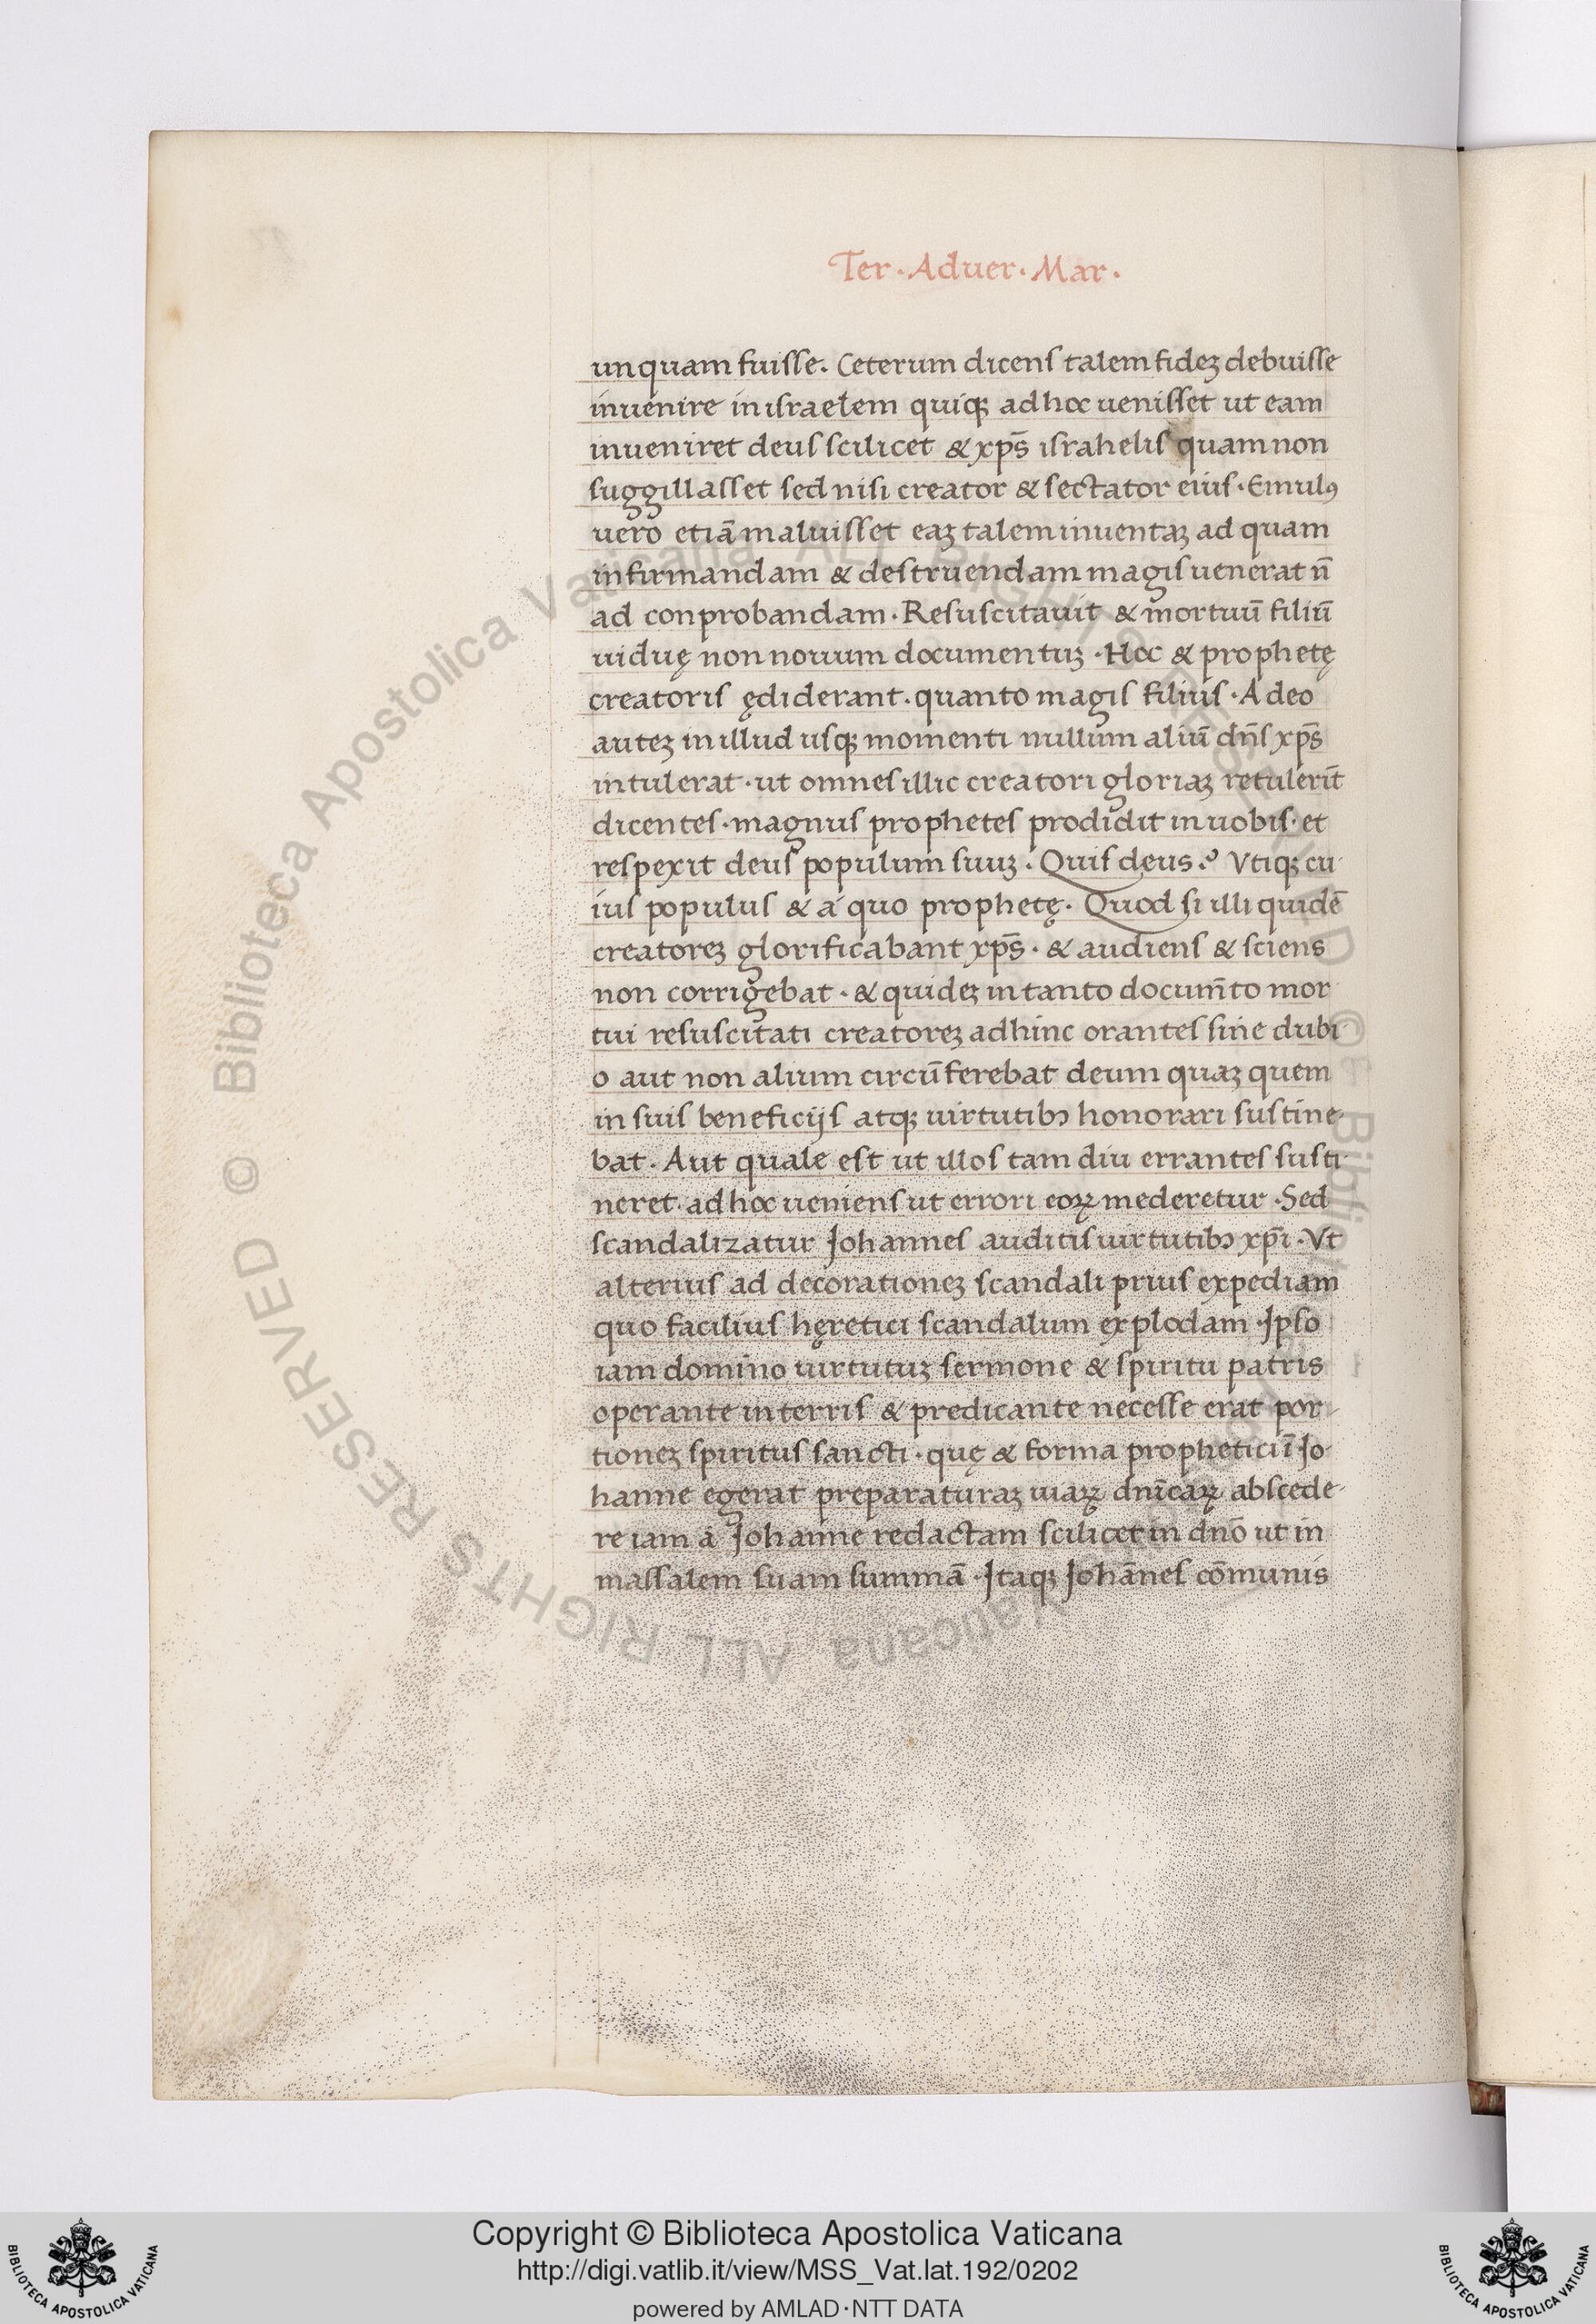 Ter · Aduer · Mar ·
unquam fuisse. Ceterum dicens talem fideꝫ debuisse
inuenire in israelem quiqꝫ ad hoc uenisset ut eam
inueniret deus scilicet & xp̄s israhelis quam non
suggillasset sed nisi creator & sectator eius · Emulꝰ
uero etiā maluisset eaꝫ talem inuentaꝫ ad quam
infirmandam & destruendam magis uenerat n̄
ad conprobandam · Resuscitauit & mortuū filiū
uiduę non nouum documentuꝫ · Hoc & prophetę
creatoris ędiderant · quanto magis filius · Adeo
auteꝫ in illud usqꝫ momenti nullum aliū dn̄s xp̄s
intulerat · ut omnes illic creatori gloriaꝫ retulerīt
dicentes · magnus prophetes prodidit in uobis · et
respexit deus populum suuꝫ · Quis deus ? Vtiqꝫ cu
ius populus & a quo prophetę · Quod si illi quidē
creatoreꝫ glorificabant xp̄s · & audiens & sciens
non corrigebat · & quideꝫ in tanto documn̄to mor
tui resuscitati creatoreꝫ adhinc orantes sine dubi
o aut non alium circūferebat deum quaꝫ quem
in suis beneficijs atqꝫ uirtutibꝫ honorari sustine
bat · Aut quale est ut illos tam diu errantes susti
neret · ad hoc ueniens ut errori eoꝝ mederetur · Sed
scandalizatur Johannes auditis uirtutibꝫ xp̄i · Vt
alterius ad decorationeꝫ scandali prius expediam
quo facilius hęretici scandalum explodam · Ipso
iam domino uirtutuꝫ sermone & spiritu patris
operante in terris & predicante necesse erat por
tioneꝫ spiritus sancti · quę & forma prophetici ī Jo
hanne egerat preparaturaꝫ uiaꝝ dn̄icaꝝ abscede
re iam a Johanne redactam scilicet in dn̄o ut in
massalem suam summā · Itaqꝫ Johānes cōmunis
© Biblioteca Apostolica Vaticana ALL RIGHTS RESERVED
Copyright © Biblioteca Apostolica Vaticana
http://digi.vatlib.it/view/MSS_Vat.lat.192/0202
powered by AMLAD·NTT DATA
BIBLIOTECA APOSTOLICA VATICANA
BIBLIOTECA APOSTOLICA VATICANA